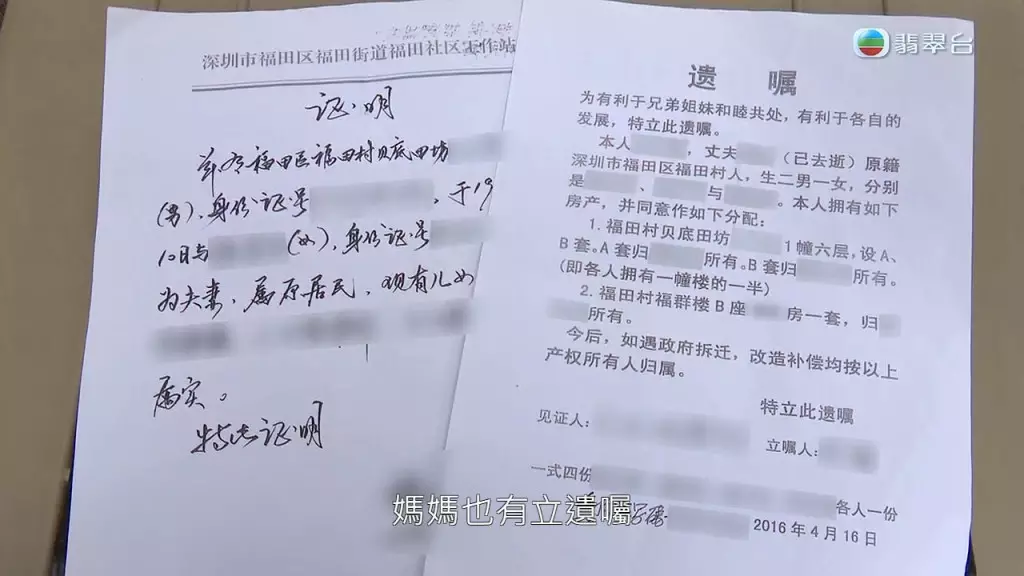 翡翠台
深圳市福田区福田街道福田社区工作站
证明
福田区福田村贝底田坊
(男)、身份证号 、于19
10日与 (女)、身份证号
为夫妻、属原居民、现有儿女
属实。
特此证明
遗嘱
为有利于兄弟姐妹和睦共处，有利于各自的
发展，特立此遗嘱。
本人 ，丈夫 (已去逝) 原籍
深圳市福田区福田村人，生二男一女，分别
是 、 与 。本人拥有如下
房产，并同意作如下分配：
1. 福田村贝底田坊 1幢六层，设A、
B套。A套归 所有。B套归 所有。
(即各人拥有一幢楼的一半)
2. 福田村福群楼B座 房一套，归
所有。
今后，如遇政府拆迁，改造补偿均按以上
产权所有人归属。
特立此遗嘱
见证人：
立嘱人：
一式四份 各人一份
2016年4月16日
媽媽也有立遺囑